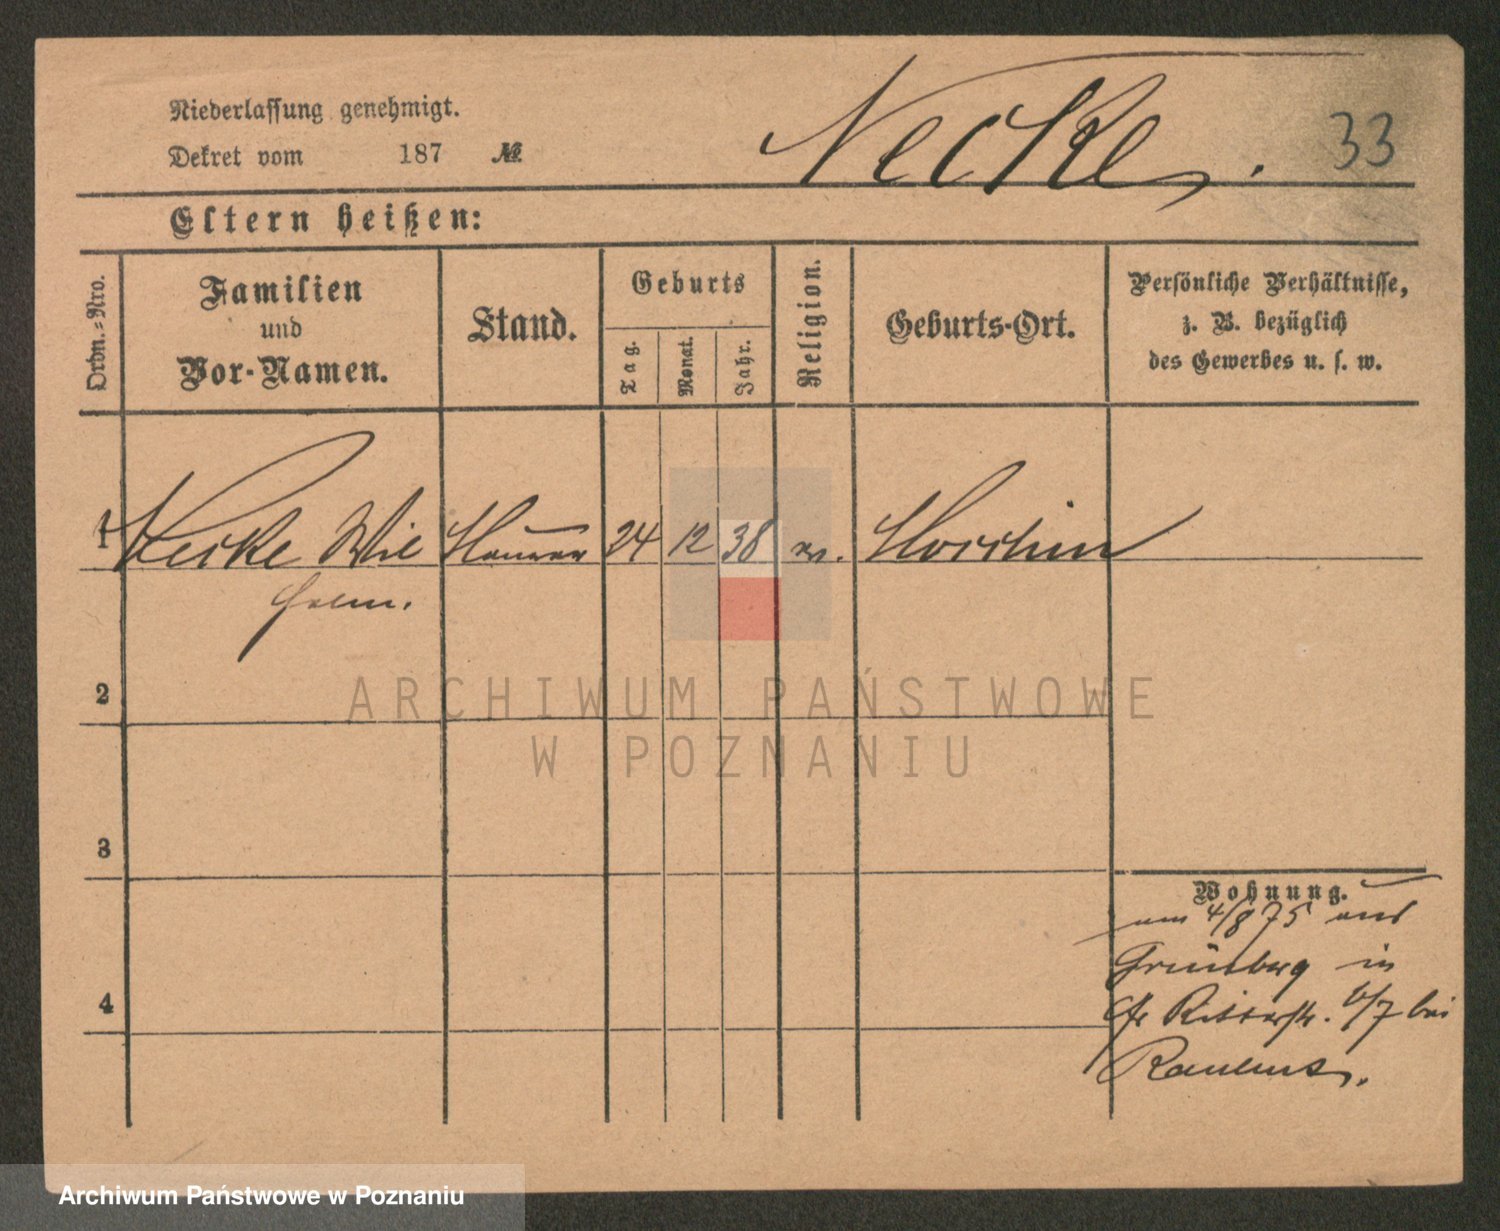 Niederlassung genehmigt.
Dekret vom 187 №
Necke.
33
Eltern heißen:
Ordn.=Nro.
Familien
und
Vor-Namen.
Stand.
Geburts
Tag.
Monat.
Jahr.
Religion.
Geburts-Ort.
Persönliche Verhältnisse,
z. B. bezüglich
des Gewerbes u. s. w.
1 Necke Wil 24 12 38 ev.
helm.
2
3
4
Wohnung.
am 4/8 75 aus
Grünberg in
Ritterstr. 6/7 bei
ARCHIWUM PAŃSTWOWE
W POZNANIU
Archiwum Państwowe w Poznaniu